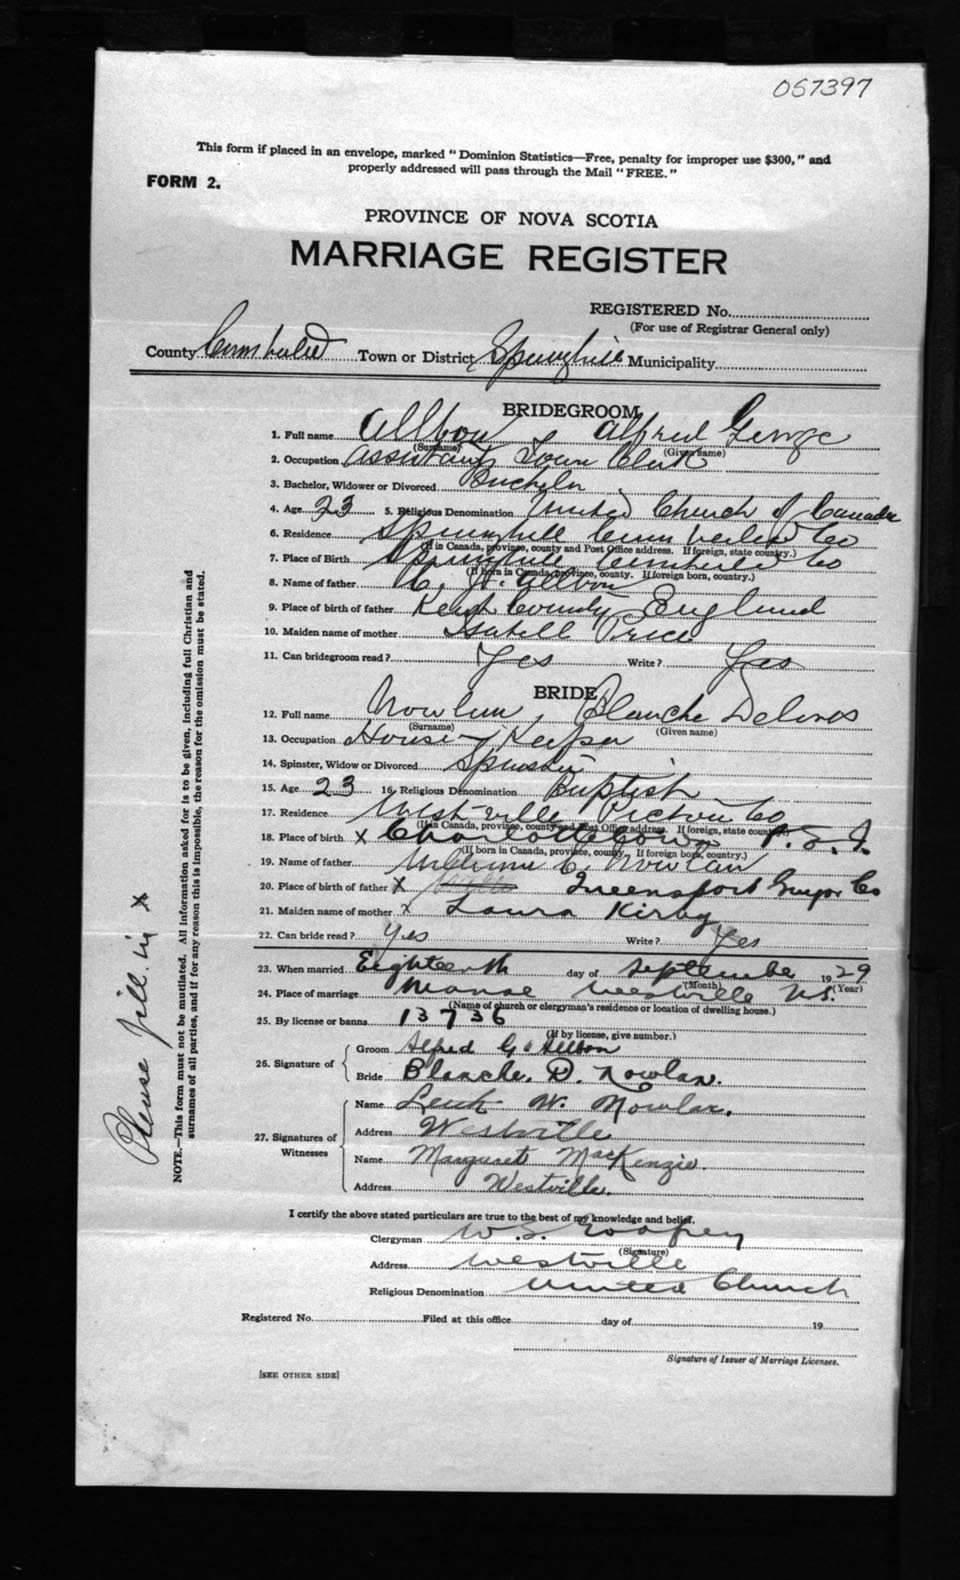 057397
This form if placed in an envelope, marked "Dominion Statistics—Free, penalty for improper use $300," and
properly addressed will pass through the Mail "FREE."
FORM 2.
PROVINCE OF NOVA SCOTIA
MARRIAGE REGISTER
REGISTERED No.
(For use of Registrar General only)
County Cumberland Town or District Springhill Municipality
BRIDEGROOM
1. Full name Allbon Alfred George
(Surname) (Given name)
2. Occupation Assistant Town Clerk
3. Bachelor, Widower or Divorced Bachelor
4. Age 23 5. Religious Denomination United Church of Canada
6. Residence Springhill Cumberland Co
(If in Canada, province, county and Post Office address. If foreign, state country.)
7. Place of Birth Springhill Cumberland Co
(If born in Canada, province, county. If foreign born, country.)
8. Name of father C. H. Allbon
9. Place of birth of father County England
10. Maiden name of mother Isabell Price
11. Can bridegroom read? Yes Write? Yes
BRIDE
12. Full name Nowlan, Blanche Delores
(Surname) (Given name)
13. Occupation House-Keeper
14. Spinster, Widow or Divorced Spinster
15. Age 23 16. Religious Denomination Baptist
17. Residence Westville Pictou Co
(If in Canada, province, county and Post Office address. If foreign, state country.)
18. Place of birth x Charlottetown P.E.I.
(If born in Canada, province, county. If foreign born, country.)
19. Name of father William C. Nowlan
20. Place of birth of father x Queensport Guyor Co
21. Maiden name of mother x Laura Kirby
22. Can bride read? Yes Write? Yes
23. When married Eighteenth day of September 1929
(Month) (Year)
24. Place of marriage Manse Westville N.S.
(Name of church or clergyman's residence or location of dwelling house.)
25. By license or banns 13736
(If by license, give number.)
26. Signature of Groom Alfred G. Allbon
Bride Blanche. D. Nowlan.
27. Signatures of Witnesses Name W. Nowlan.
Address Westville
Name Margaret MacKenzie.
Address Westville.
I certify the above stated particulars are true to the best of my knowledge and belief.
Clergyman W. S. Godfrey
(Signature)
Address Westville
Religious Denomination United Church
Registered No. Filed at this office day of 19
Signature of Issuer of Marriage Licenses.
[SEE OTHER SIDE]
NOTE.—This form must not be mutilated. All information asked for is to be given, including full Christian and
surnames of all parties, and if for any reason this is impossible, the reason for the omission must be stated.
Please fill in x